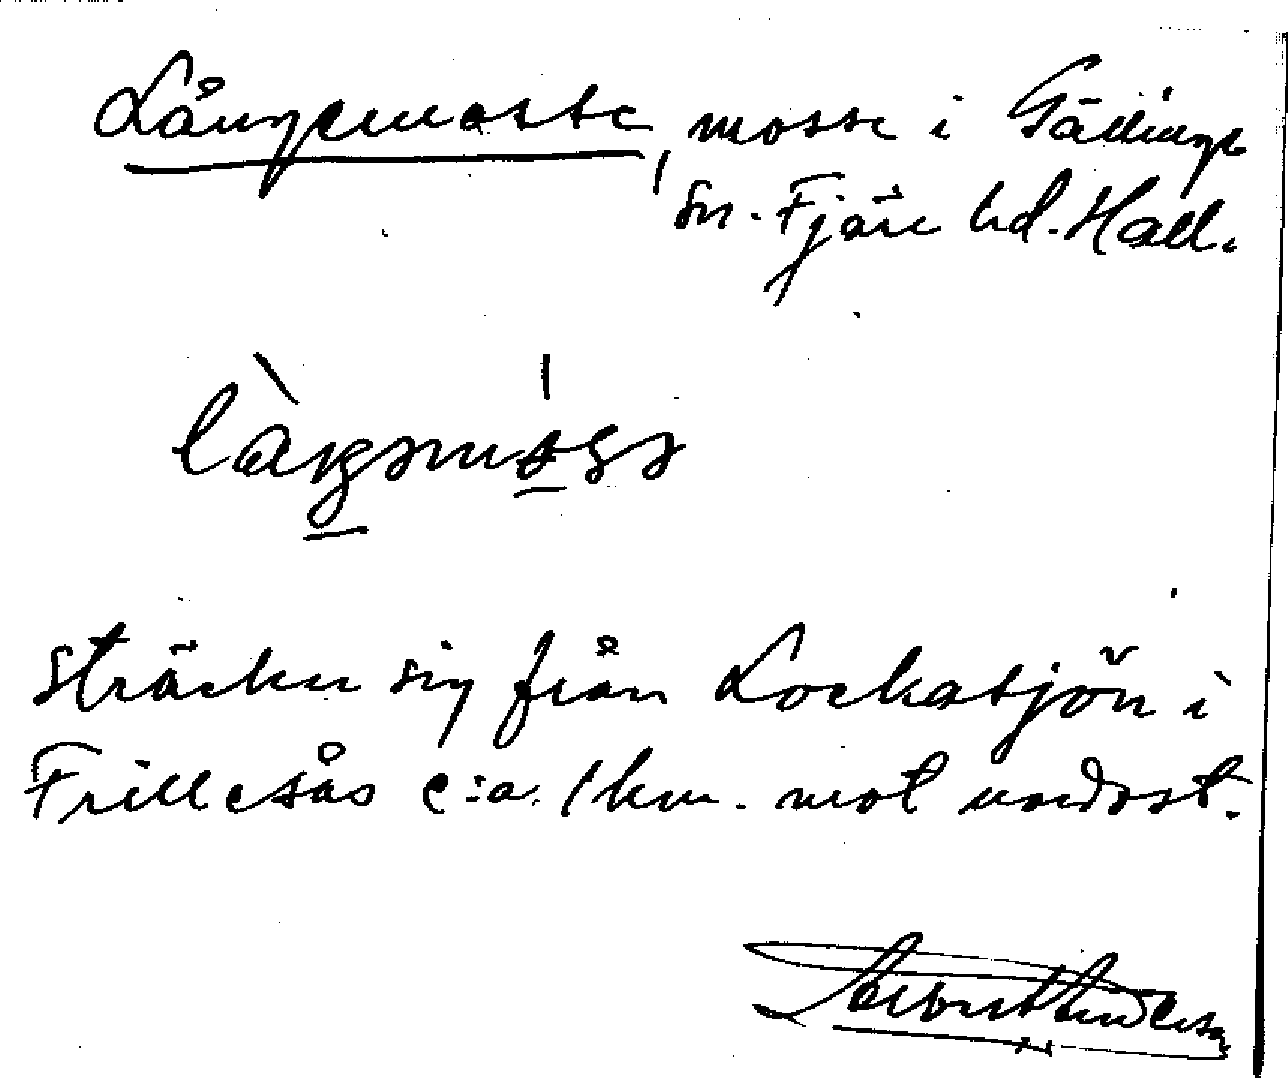 Långemosse, mosse i Gällinge
sn. Fjäre hd. Hall.
sträcker sig från Lockasjön i
Frillesås c:a 1 km. mot nordost.